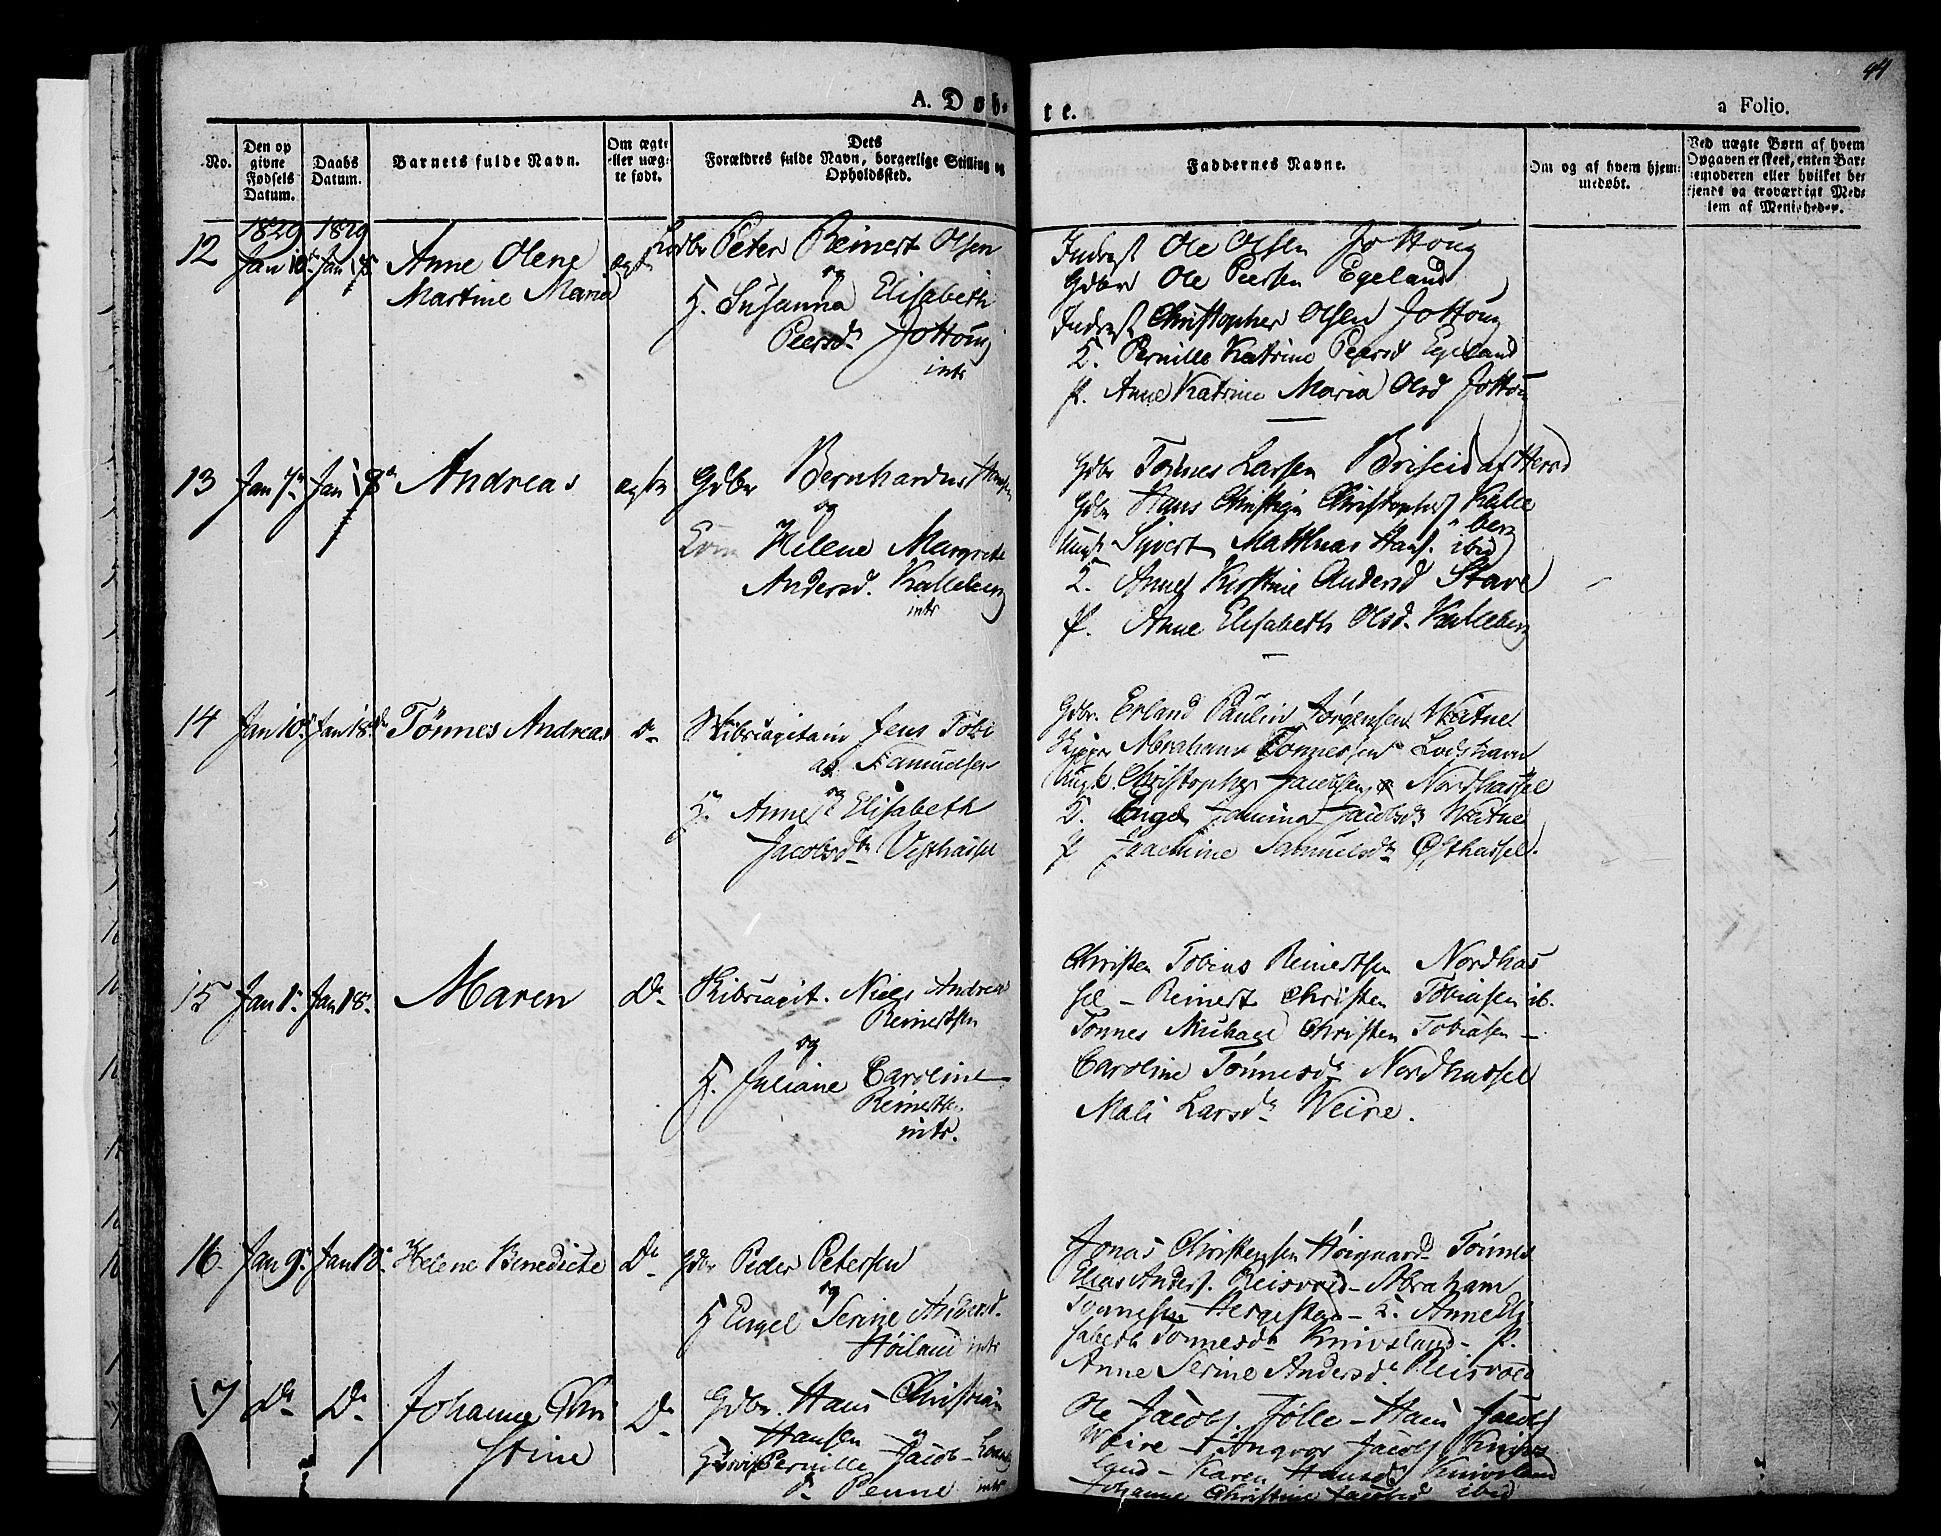 44
A. Døb-
te.
a Folio.
No.
Den op
givne
Fødsels
Datum.
Daabs
Datum.
Barnets fulde Navn.
Om ægte
eller uæg-
te født.
Dets
Forældres fulde Navn, borgerlige Stilling og
Opholdssted.
Faddernes Navne.
Om og af hvem hjem-
medøbt.
Ved uægte Børn af hvem
Opgaven er skeet, enten Bar-
nemoderen eller hvilket be-
kjendt og troværdigt Med-
lem af Menigheden.
1829 1829
12 Jan 10 Jan 18 Anne Olene
Martine Maria
ægte
Peter Reinert Olsen
og
H. Susanna Elisabeth
Peersd. Jottoug
intr
Ole Olsen Jottoug
Gdbr Ole Peersen Egeland
Christopher Olsen Jottoug
T. Pernille Katrine Peersd Egeland
P. Anne Katrine Maria Olsd Jottou
13 Jan 7 Jan 18 Andreas ægte
Gdbr Bernhardus Hansen
og
Helene Margrete
Andersd. Kalleberg
intr
Gdbr Tønnes Larsen Briseid af Herad
Gdbr Hans Christian Christophers Kalle
berg
Ungk Syvert Matthias Hans. ibid
T. Anne Kirstine Andersd Stave
P. Anne Elisabeth Olsd. Kalleberg
14 Jan 10 Jan 18 Tønnes Andreas Do
Skibscapitain Jens Tobi
as Samuelsen
og
H. Anne Elisabeth
Jacobsd. Vesthassel
Gdbr. Erland Paulin Jørgensen Watne
Abraham Tønnessen Lodshavn
Ungk. Christopher Jacobsen Nordhassel
T. Engel Jacobsd. Watne
P Joachine Samuelsd. Østhassel.
15 Jan 1 Jan 18 Maren Do
Skibscapit. Niels Andreas
Reinertsen
og
H. Juliane Caroline
Reinerts
intr.
Christen Tobias Reinertsen Nordhas
sel - Reinert Christen Tobiasen ib.
Tønnes Michael Christen Tobiasen -
Caroline Tønnesd. Nordhassel
Mali Larsd. Weire.
16. Jan 9 Jan 18 Helene Benedicte Do
Gdbr Peder Petersen
og
H Engel Serine Andersd.
Høiland intr
Jonas Christensen Høigaard Tønnes
Elias Anders. Reisvold - Abraham
Tønnesen - T. Anne Eli
sabeth Tønnesd. Knivsland - P.
Anne Serine Andersd. Reisvold
17 Do Do Johanne Chri
stine
Do
Gdbr. Hans Christian
Hansen og
Pernille Jacob-
Penne intr
Ole Jacobs. Jølle - Hans Jacobs
Weire - Ingvor Jacobs Knivs
land - Karen Hansd. Knivsland
Johanne Christine Jacobsd ibid